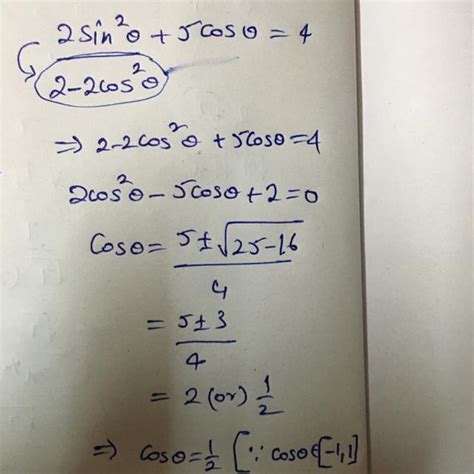 2sin²θ + 5cosθ = 4
2-2cos²θ
⇒ 2-2cos²θ + 5cosθ=4
2cos²θ - 5cosθ + 2 = 0
Cosθ = (5±√(25-16))/4
= (5±3)/4
= 2 (or) 1/2
⇒ cosθ = 1/2 [∵ cosθ∈[-1,1]